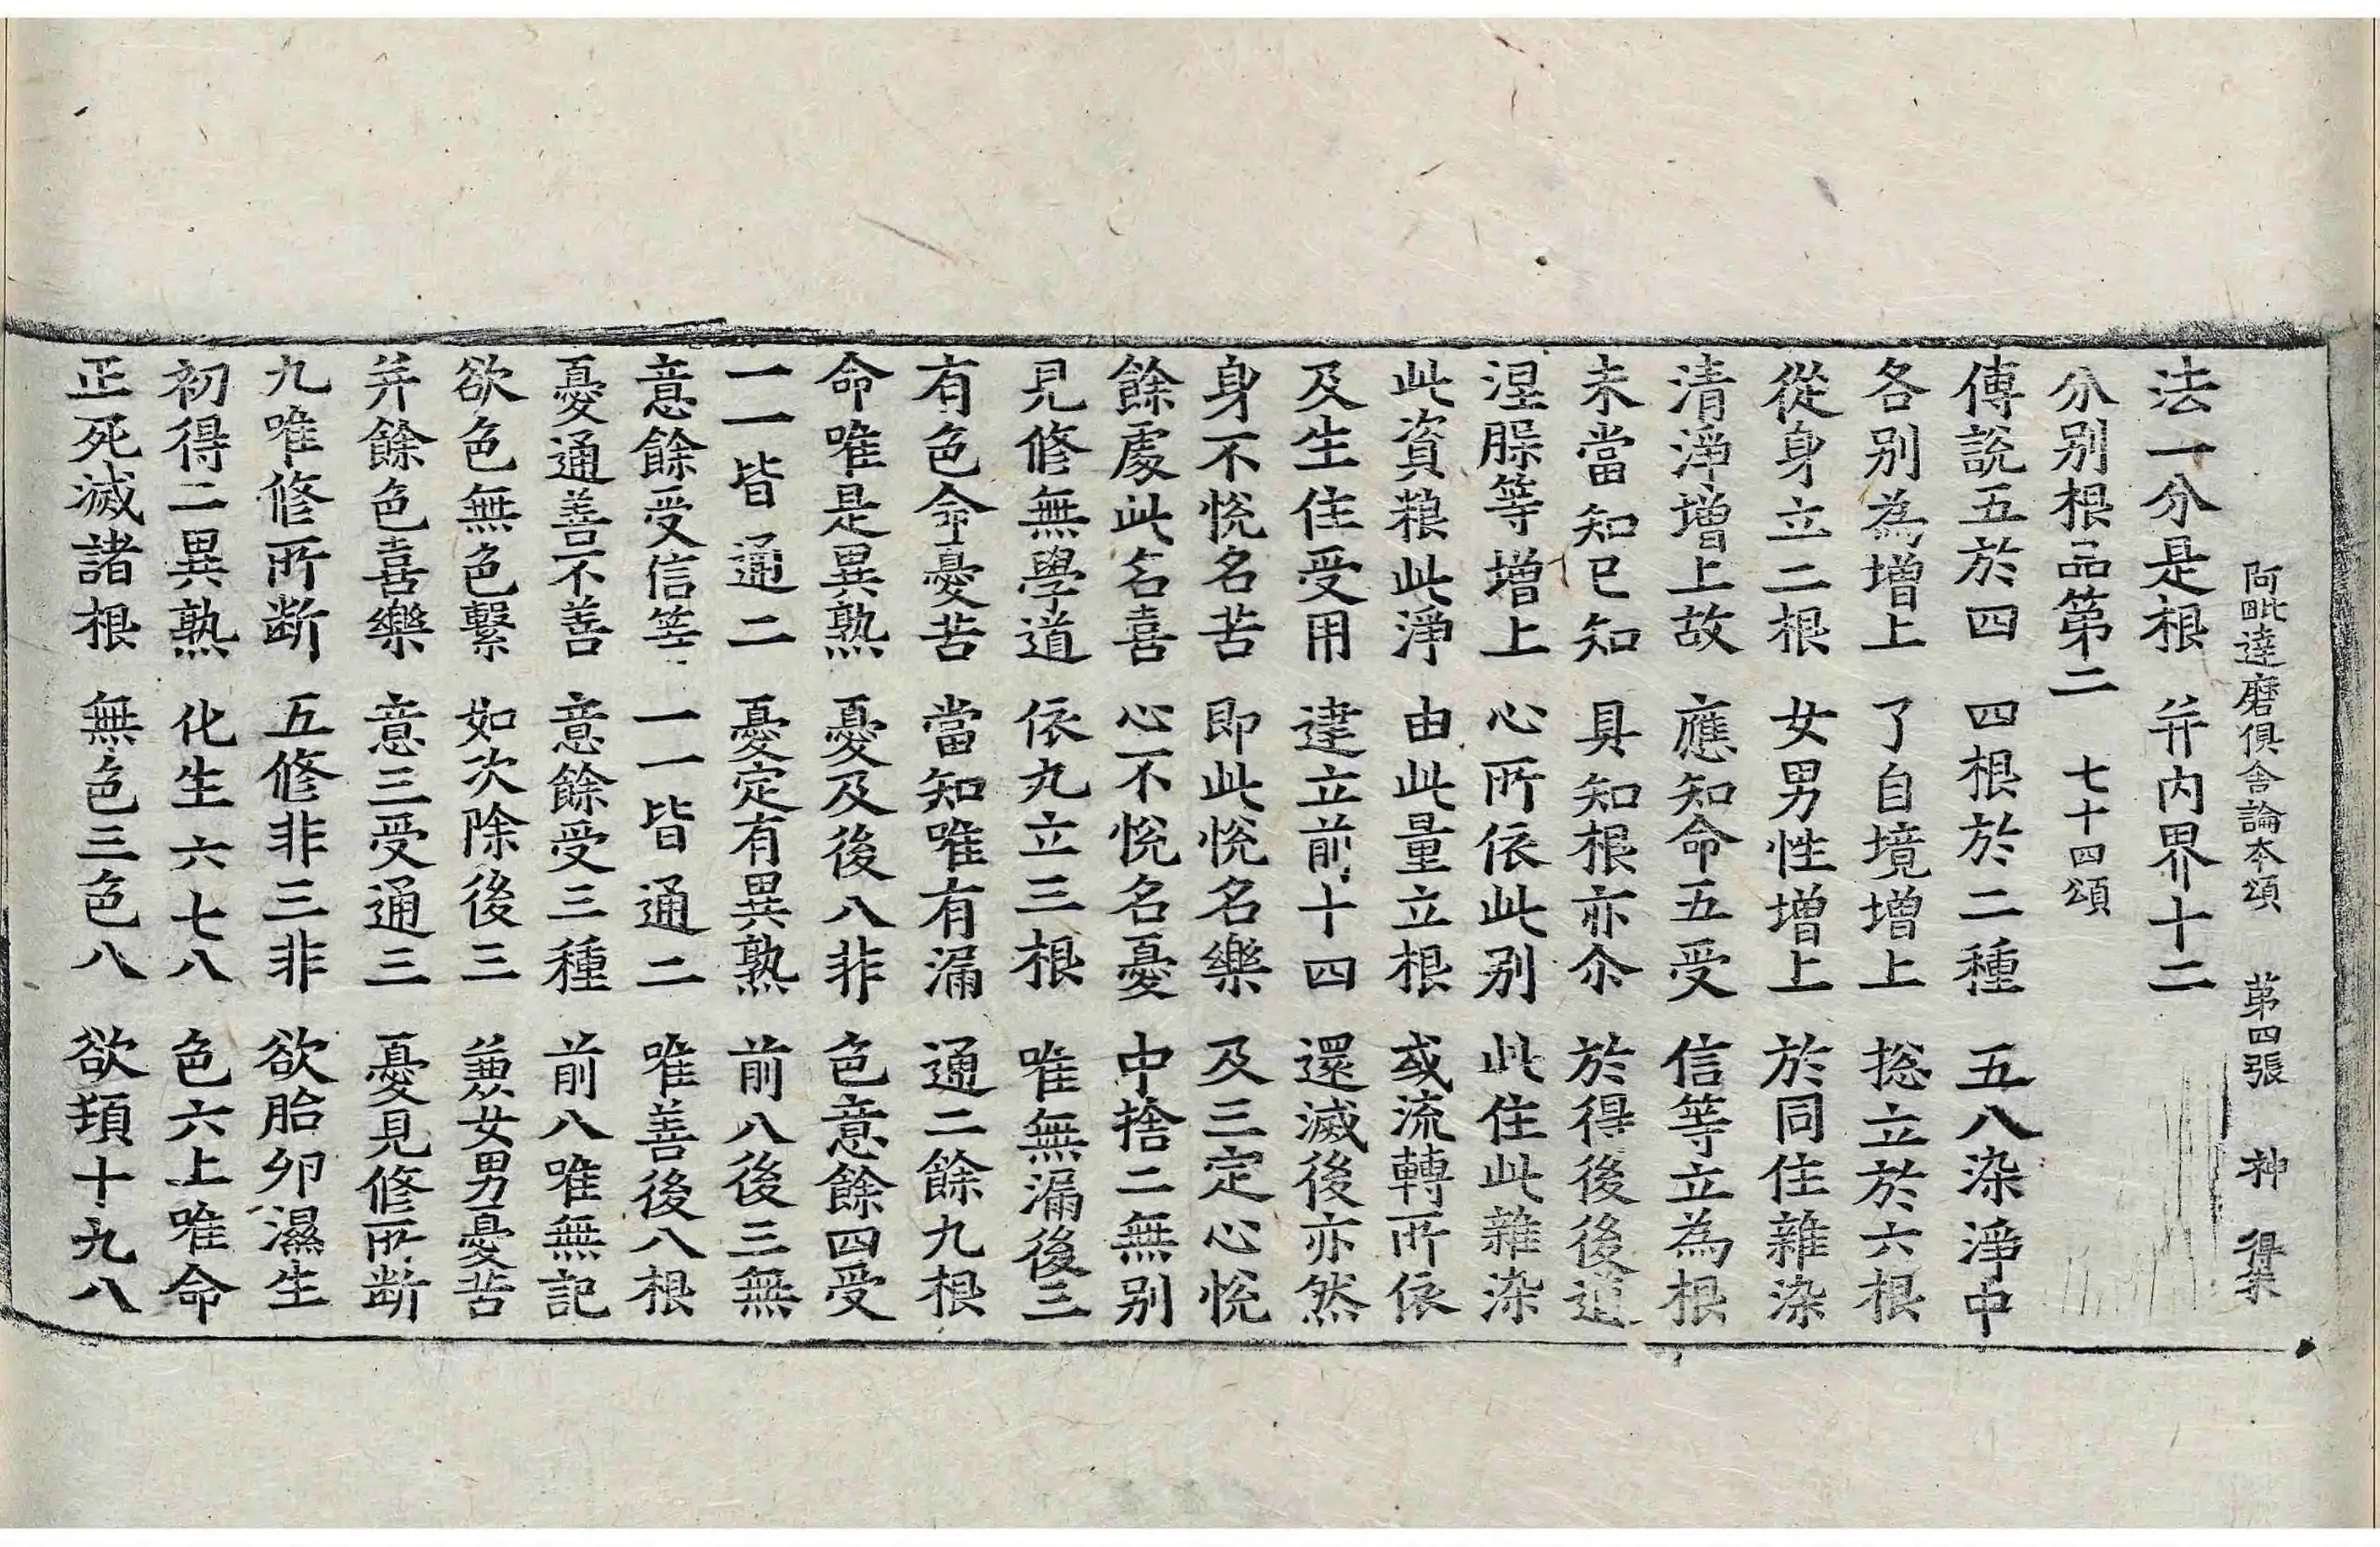 阿毗達磨俱舍論本頌 第四張 神 得宗
法一分是根 并內界十二
分別根品第二 七十四頌
傳說五於四 四根於二種 五八染淨中
各別為增上 了自境增上 捴立於六根
從身立二根 女男性增上 於同住雜染
清淨增上故 應知命五受 信等立為根
未當知已知 具知根亦尒 於得後後道
涅槃等增上 心所依此別 此住此雜染
此資粮此淨 由此量立根 或流轉所依
及生住受用 建立前十四 還滅後亦然
身不悅名苦 即此悅名樂 及三定心悅
餘處此名喜 心不悅名憂 中捨二無別
見修無學道 依九立三根 唯無漏後三
有色命憂苦 當知唯有漏 通二餘九根
命唯是異熟 憂及後八非 色意餘四受
一一皆通二 憂定有異熟 前八後三無
意餘受信等 一一皆通二 唯善後八根
憂通善不善 意餘受三種 前八唯無記
欲色無色繫 如次除後三 兼女男憂苦
并餘色喜樂 意三受通三 憂見修所斷
九唯修所斷 五修非三非 欲胎卵濕生
初得二異熟 化生六七八 色六上唯命
正死滅諸根 無色三色八 欲頓十九八